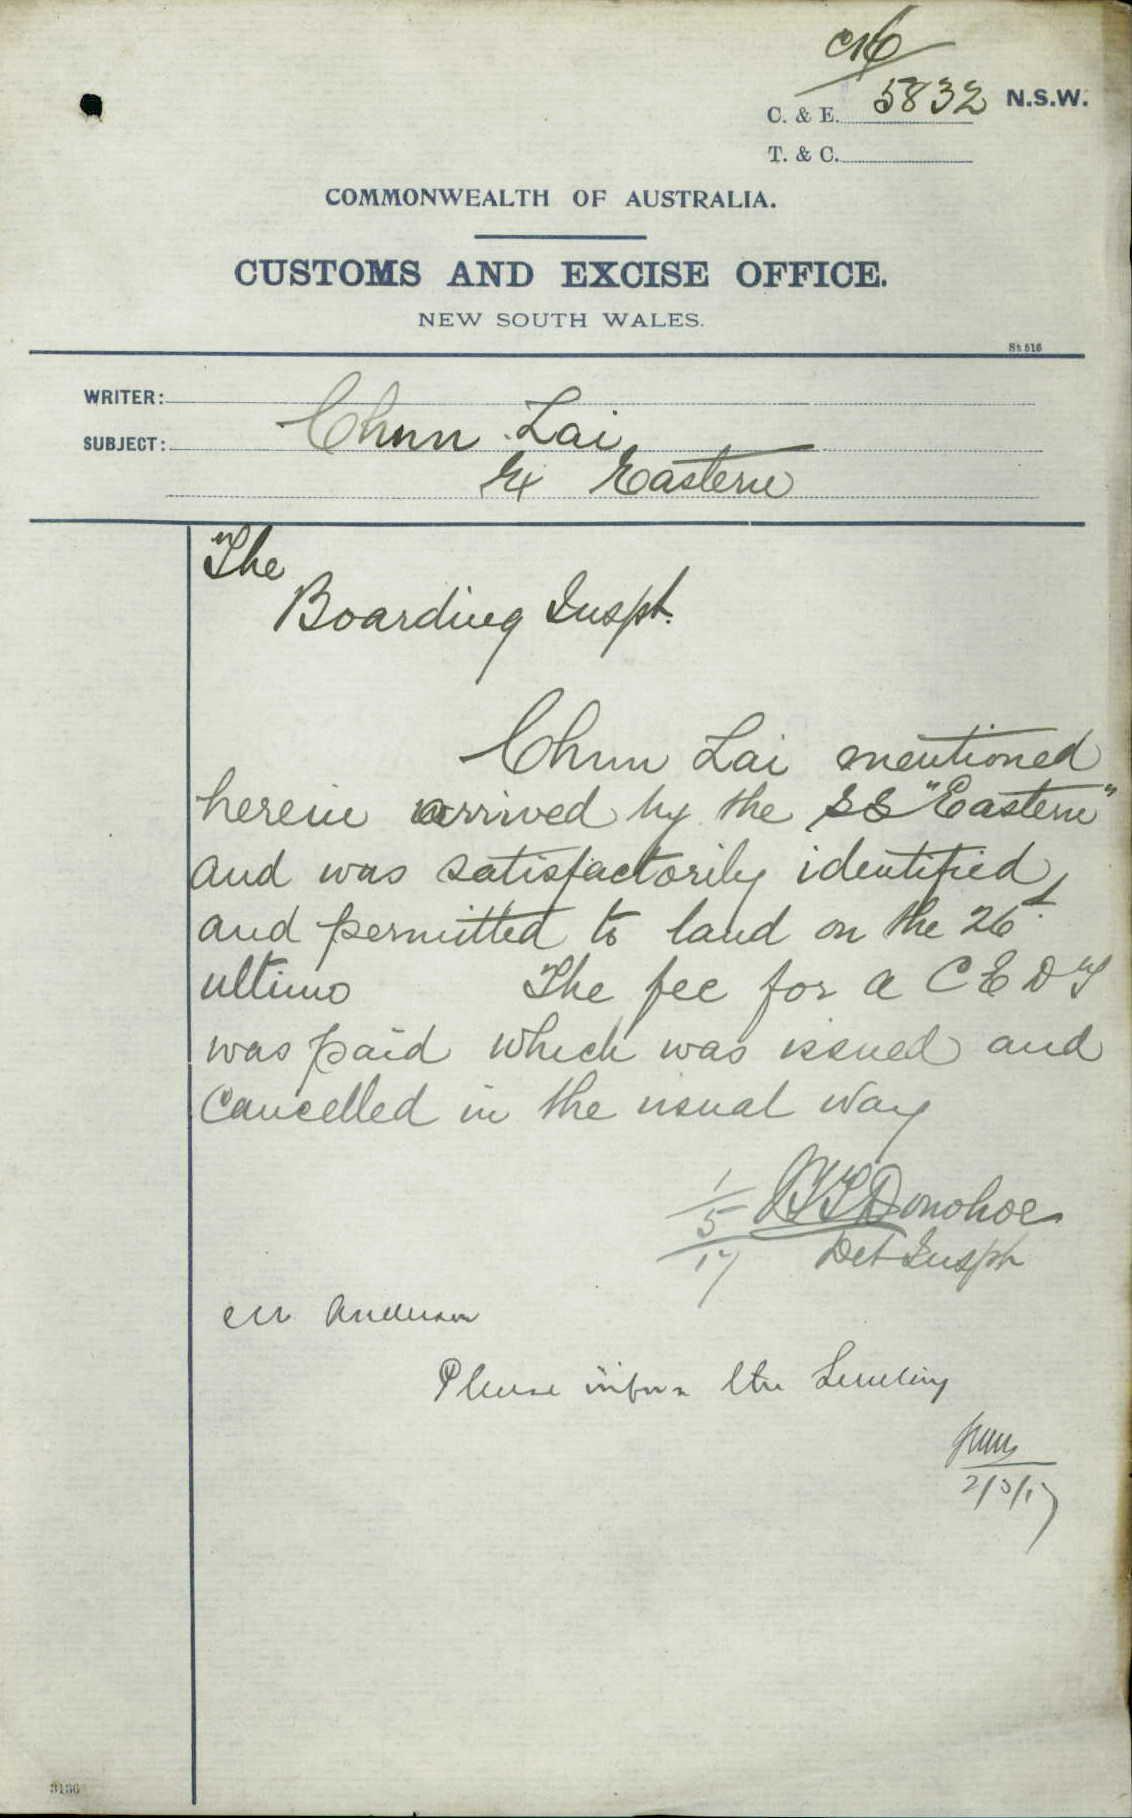 C. & E. 5832 N.S.W.
T. & C.
COMMONWEALTH OF AUSTRALIA.
CUSTOMS AND EXCISE OFFICE.
NEW SOUTH WALES.
St 516
WRITER:
SUBJECT: Chun Lai
Ex Eastern
The
Boarding Inspt.
Chun Lai mentioned
herein arrived by the SS "Eastern"
and was satisfactorily identified
and permitted to land on the 26
ultimo The fee for a C E D T
was paid which was issued and
cancelled in the usual way
1/5/17 Donohoe
Det Inspt
Mr Anderson
Please inform
2/5/17
3136